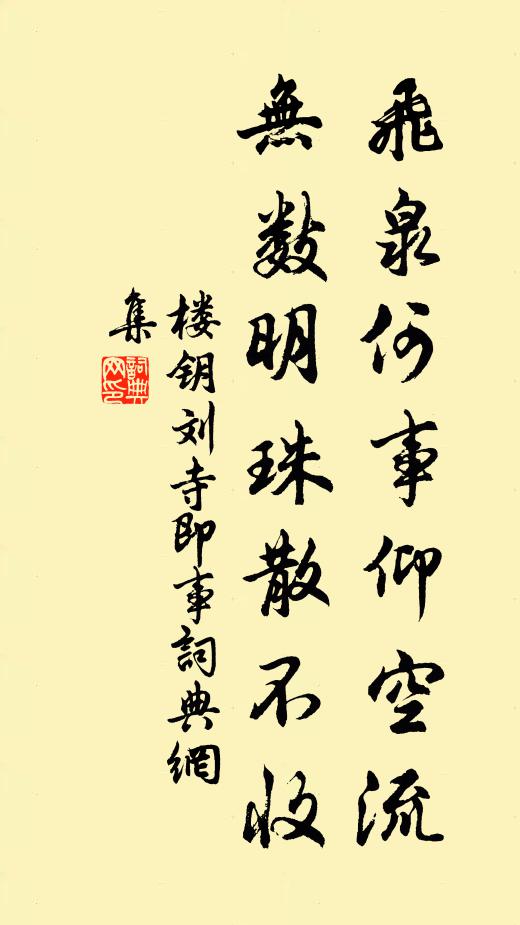 飛泉何事仰空流
無数明珠散不收
楼钥刘寺即事詞典網
集
詞典
网印